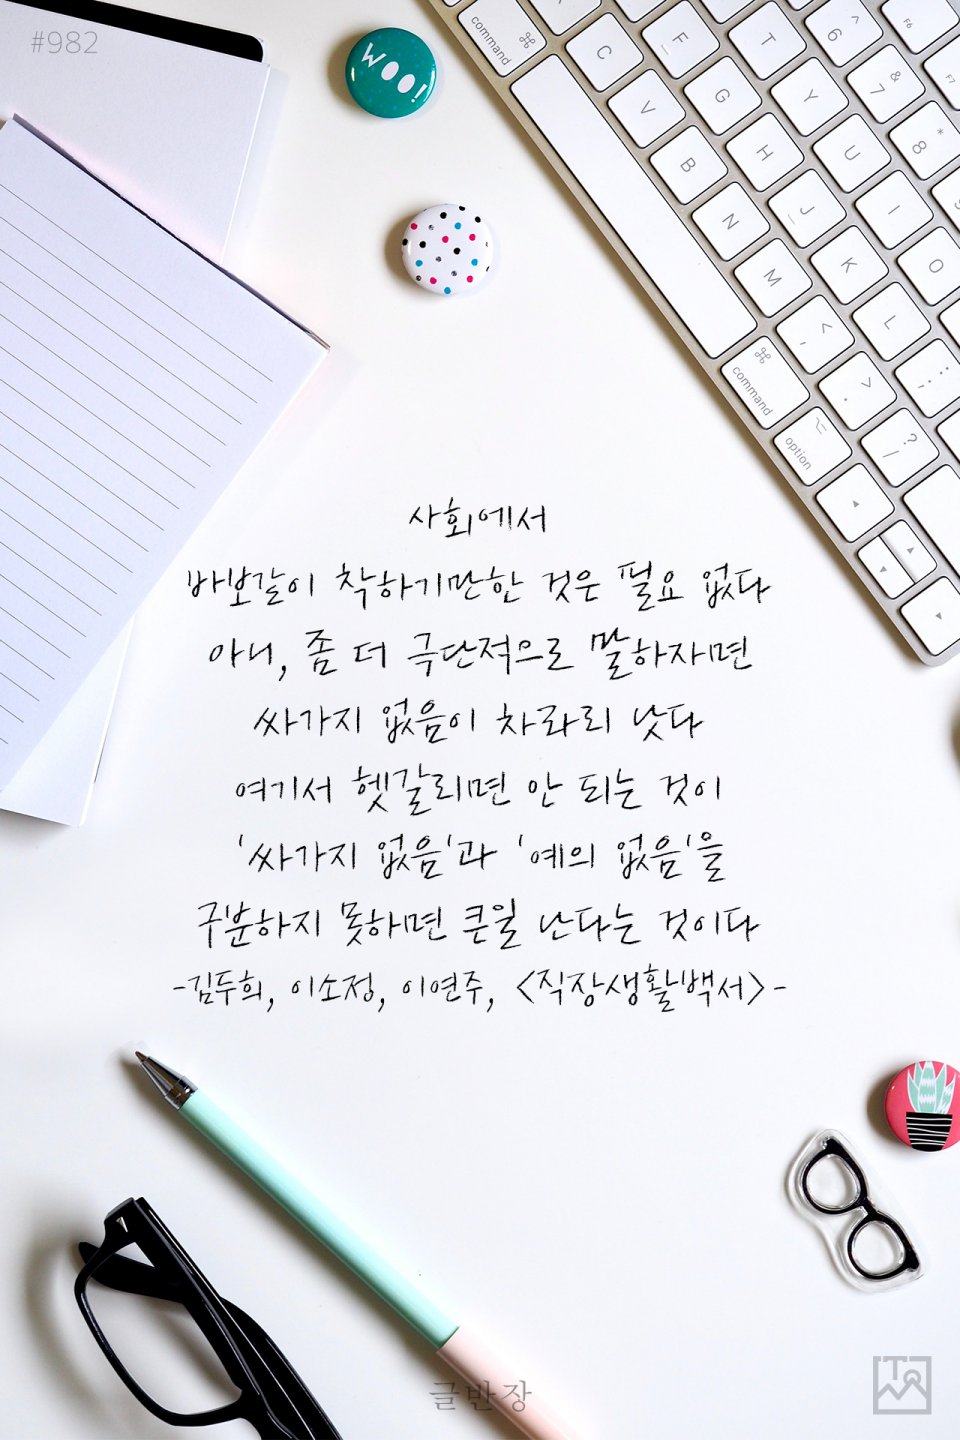 #982
WOO!
사회에서
바보같이 착하기만한 것은 필요 없다
아니, 좀 더 극단적으로 말하자면
싸가지 없음이 차라리 낫다
여기서 헷갈리면 안 되는 것이
'싸가지 없음'과 '예의 없음'을
구분하지 못하면 큰일 난다는 것이다
-김두희, 이소정, 이연주, <직장생활백서>-
글반장
command
C F T 6 F6
V G Y & 7 F7
B H U * 8
N J I
M K O
< , L
command > . : ;
option ? /